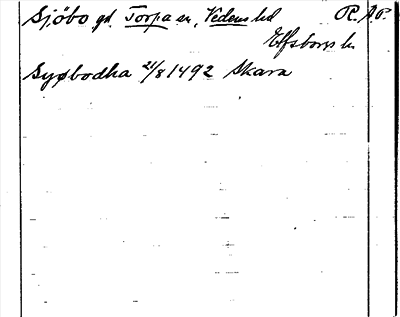 Sjöbo gd. Torpa sn, Vedens hd R.A.P.
Elfsborgs ln
Syøbodha 21/8 1492 Skara